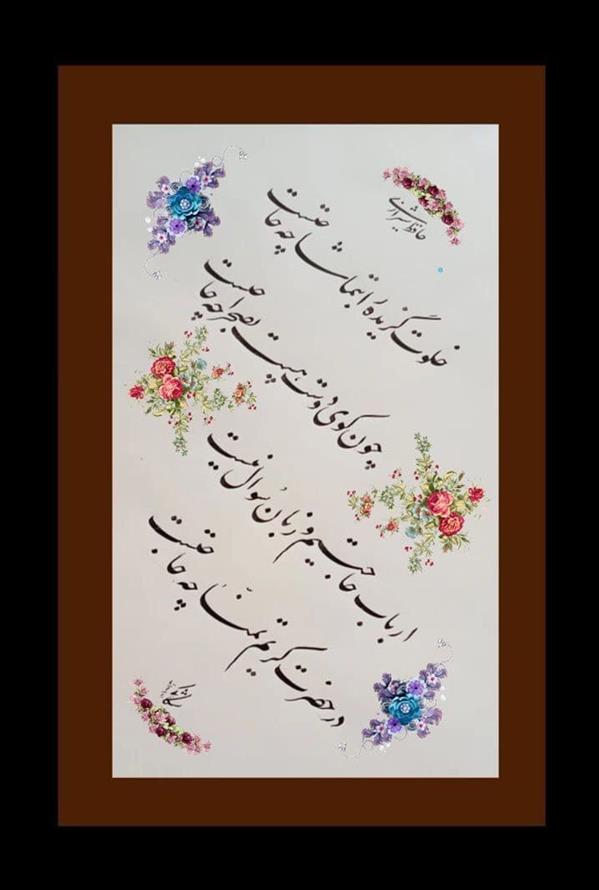 حافظ شیراز
خلوت گزیده را بتماشا چه حاجتست
چون کوی دوست هست بصحرا چه حاجتست
ارباب حاجتیم و زبان سؤال نیست
در حضرت کریم تمنّا چه حاجتست